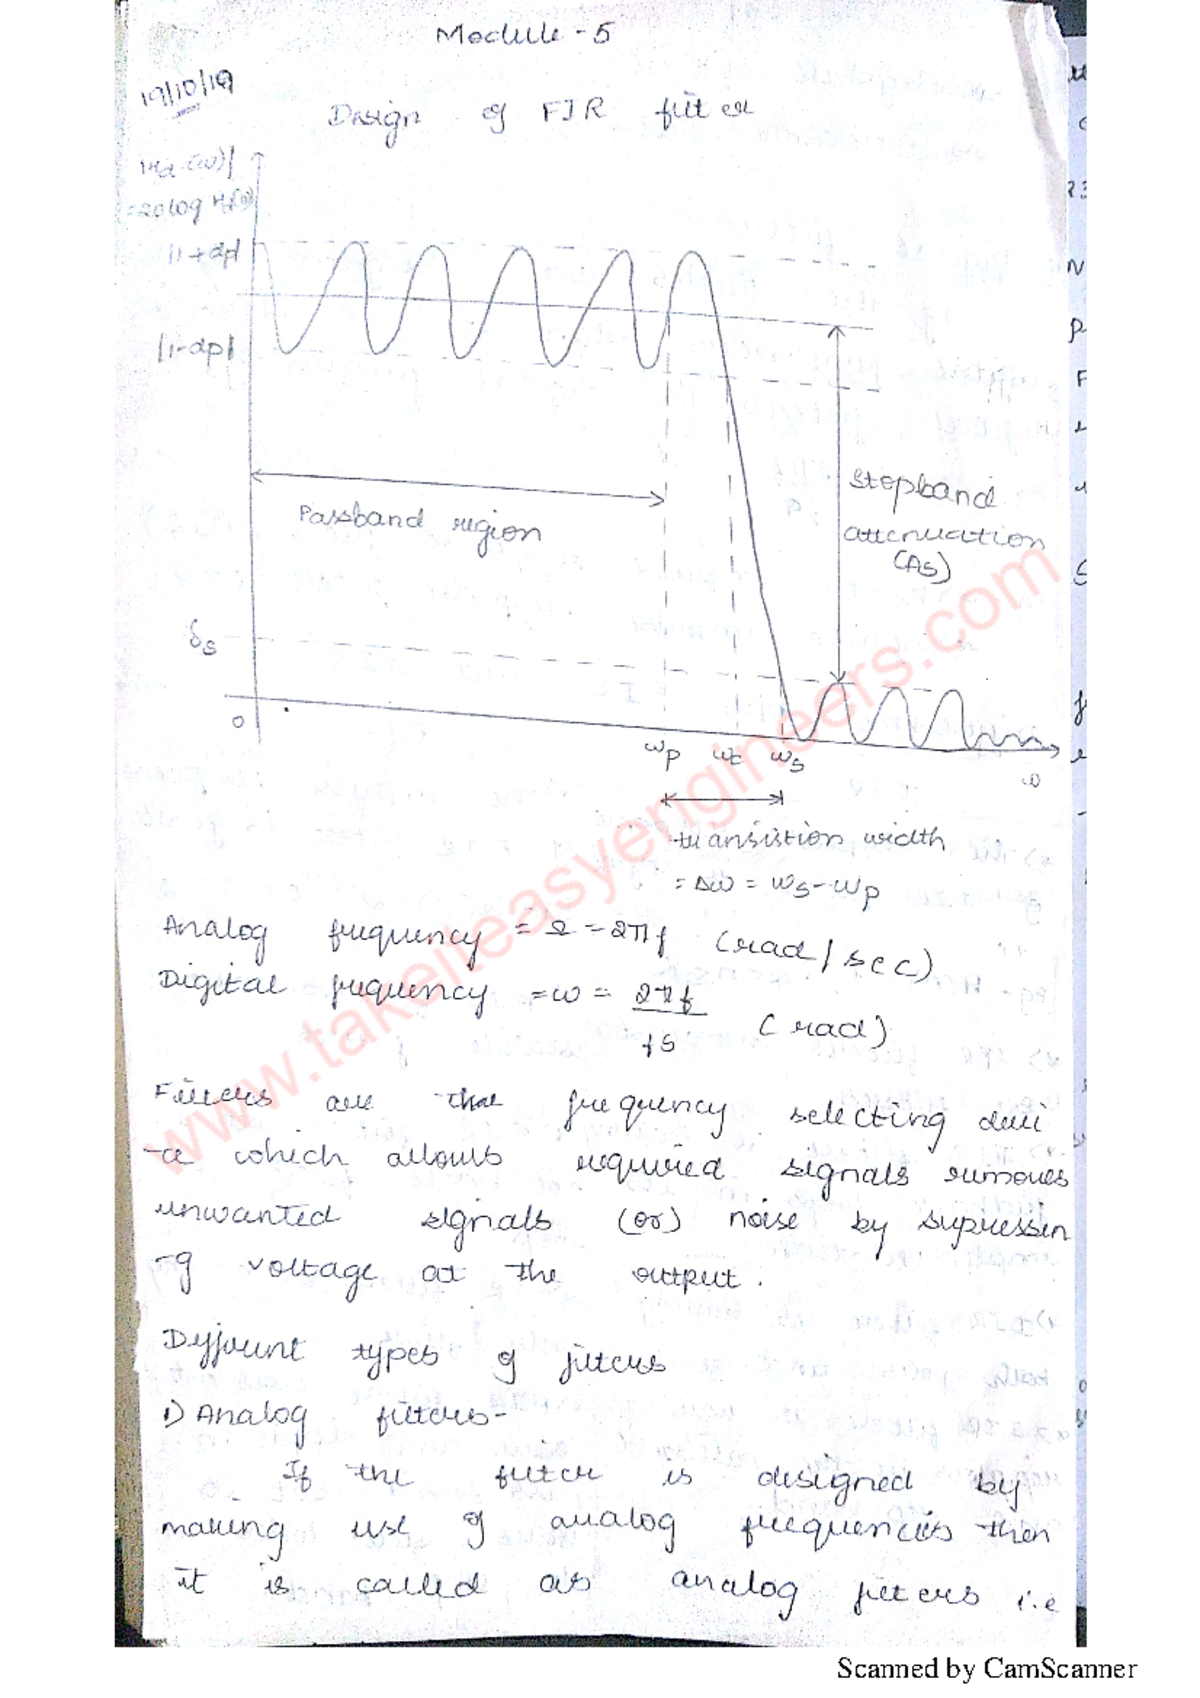 Module - 5
19/10/19
Design of FIR filter
|Hd(ω)|
=20log Hd(ω)
|1+dp|
|1-dp|
Stopband
attenuation
(As)
Passband region
δs
0
ωp ωc ωs
ω
transistion width
= Δω = ωs-ωp
Analog frequency = Ω = 2πf (rad/sec)
Digital frequency = ω = 2πf/fs (rad)
Filters are the frequency selecting devi
-ce which allows required signals removes
unwanted signals (or) noise by supressin
-g voltage at the output.
Different types of filters
1) Analog filters-
If the filter is designed by
making use of analog frequencies then
it is called as analog filters i.e
www.takeiteasyengineers.com
Scanned by CamScanner